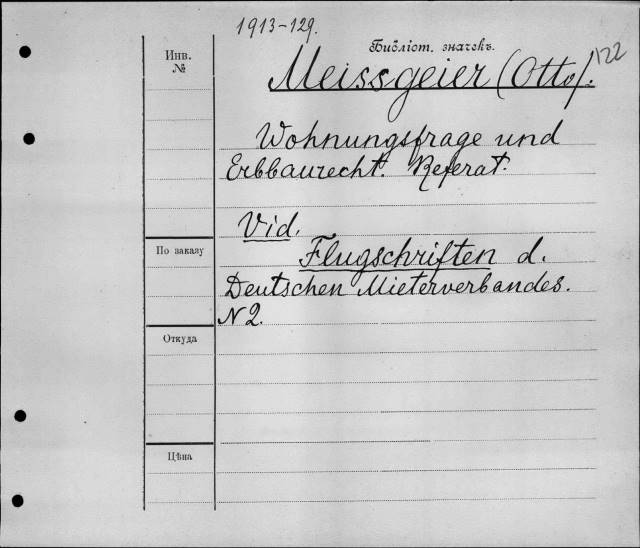 1913-129.
Библіот. значекъ.
122
Инв.
№
Meissgeier (Otto).
Wohnungsfrage und
Erbbaurecht. Referat.
Vid.
По заказу
Flugschriften d.
Deutschen Mieterverbandes.
N 2.
Откуда
Цѣна